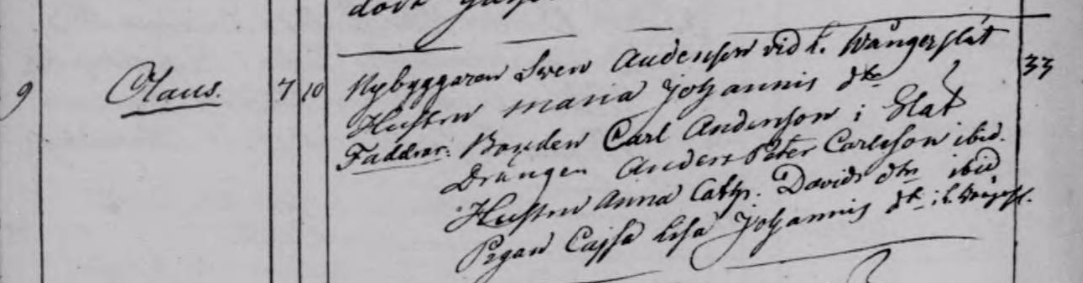 Nybyggaren Swen Anderson vid L. Wångerslät
9 Olaus. 7 10 Hustru Maria Johannis dtr 33
Faddrar: Bonden Carl Anderson i Slät
Drängen Anders Peter Carlsson ibid.
Hustru Anna Cath. Davids dtr ibid
Pigan Cajsa Lisa Johannis dtr i L. Wångersl.